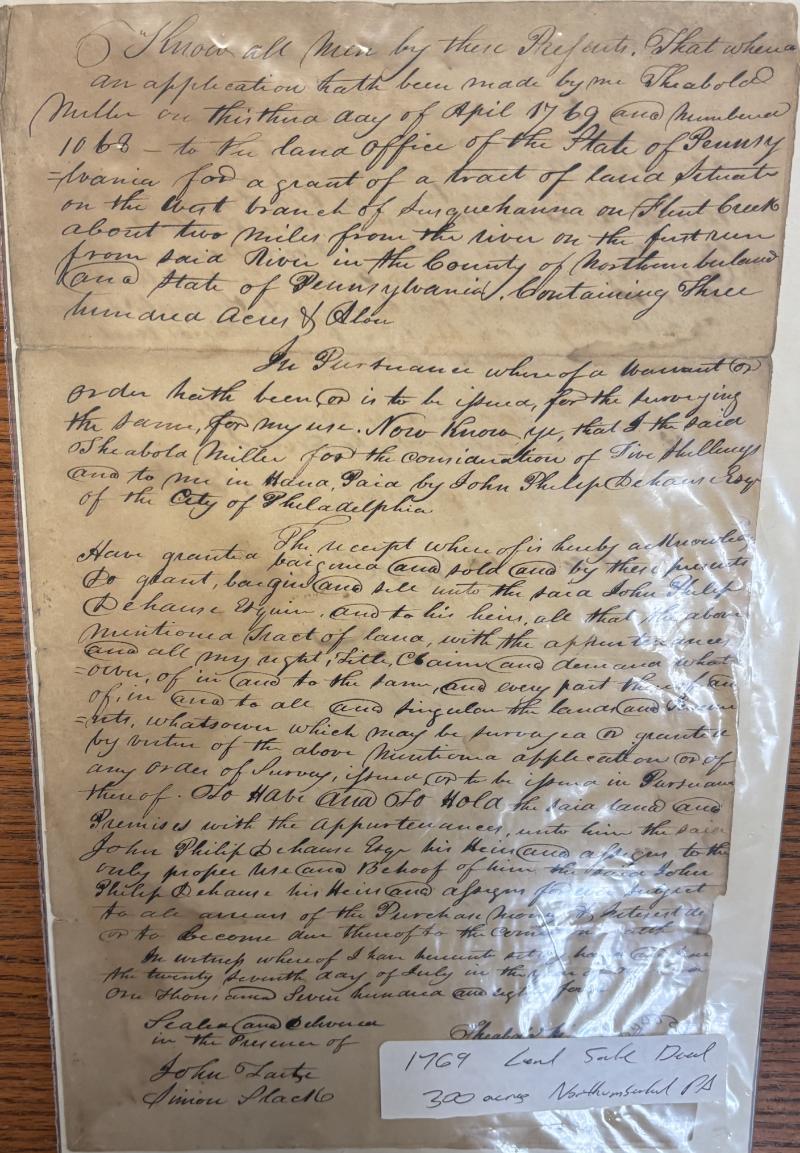 "Know all Men by these Presents. That whereas
an application hath been made by me Theabold
Miller on this third day of April 1769 and Numbered
1068 — to the land office of the State of Pennsy
=lvania for a grant of a tract of land Situate
on the west branch of Susquehanna on Flint Creek
about two miles from the river on the first run
from said River in the County of Northumberland
and State of Pennsylvania, Containing Three
hundred Acres &
In Pursuance whereof a Warrant or
order hath been, or is to be issued, for the surveying
the same, for my use. Now Know ye, that I the said
Theabold Miller for the consideration of Five Shillings
and to me in Hand, Paid by John Philip Dehause Esqr
of the City of Philadelphia
The receipt whereof is hereby acknowledg
Have granted bargined and sold and by these presents
Do grant, bargin and sell unto the said John Philip
Dehause Esquire, and to his heirs, all that the above
mentioned Tract of land, with the appurtenances
and all my right, Title, Claim and demand what
=oever, of in and to the same, and every part thereof an
of, in and to all and singular the lands and
=nts, whatsower which may be survayed or granted
by virtue of the above Mentioned application or of
any order of Survay, issued or to be issued in Pursuance
thereof. To Have and To Hold the said land and
Premises with the appurtenances, unto him the said
John Philip Dehause Esqr his Heirs and assigns to the
only proper Use and Behoof of him the said John
Philip Dehause his Heirs and assigns for ever Subject
to all arrears of the Purchase Money & Interest
or to become due thereof to the
In witness whereof I have hereunto set my hand and
the twenty seventh day of July in the
One Thousand Seven hundred and
Sealed and Delivered
in the Presence of
Theabald
John
Simion Slack
1769 Land Sale Deed
300 acres Northumberland PA